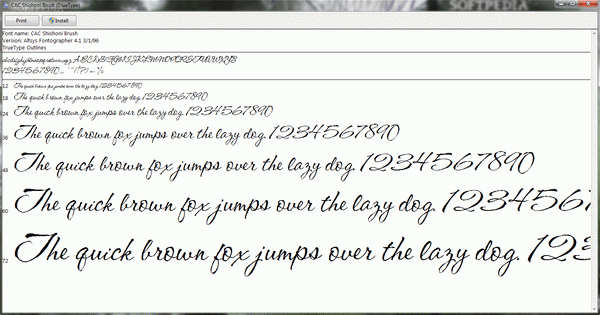 CAC Shishoni Brush (TrueType)
SOFTPEDIA
Print Install
Font name: CAC Shishoni Brush
Version: Altsys Fontographer 4.1 3/1/96
TrueType Outlines
abcdefghijklmnopqrstuvwxyz ABCDEFGHIJKLMNOPQRSTUVWXYZ
12 The quick brown fox jumps over the lazy dog. 1234567890
18 The quick brown fox jumps over the lazy dog. 1234567890
24 The quick brown fox jumps over the lazy dog. 1234567890
36 The quick brown fox jumps over the lazy dog. 1234567890
48 The quick brown fox jumps over the lazy dog. 1234567890
60 The quick brown fox jumps over the lazy dog. 1234567
72 The quick brown fox jumps over the lazy dog. 123